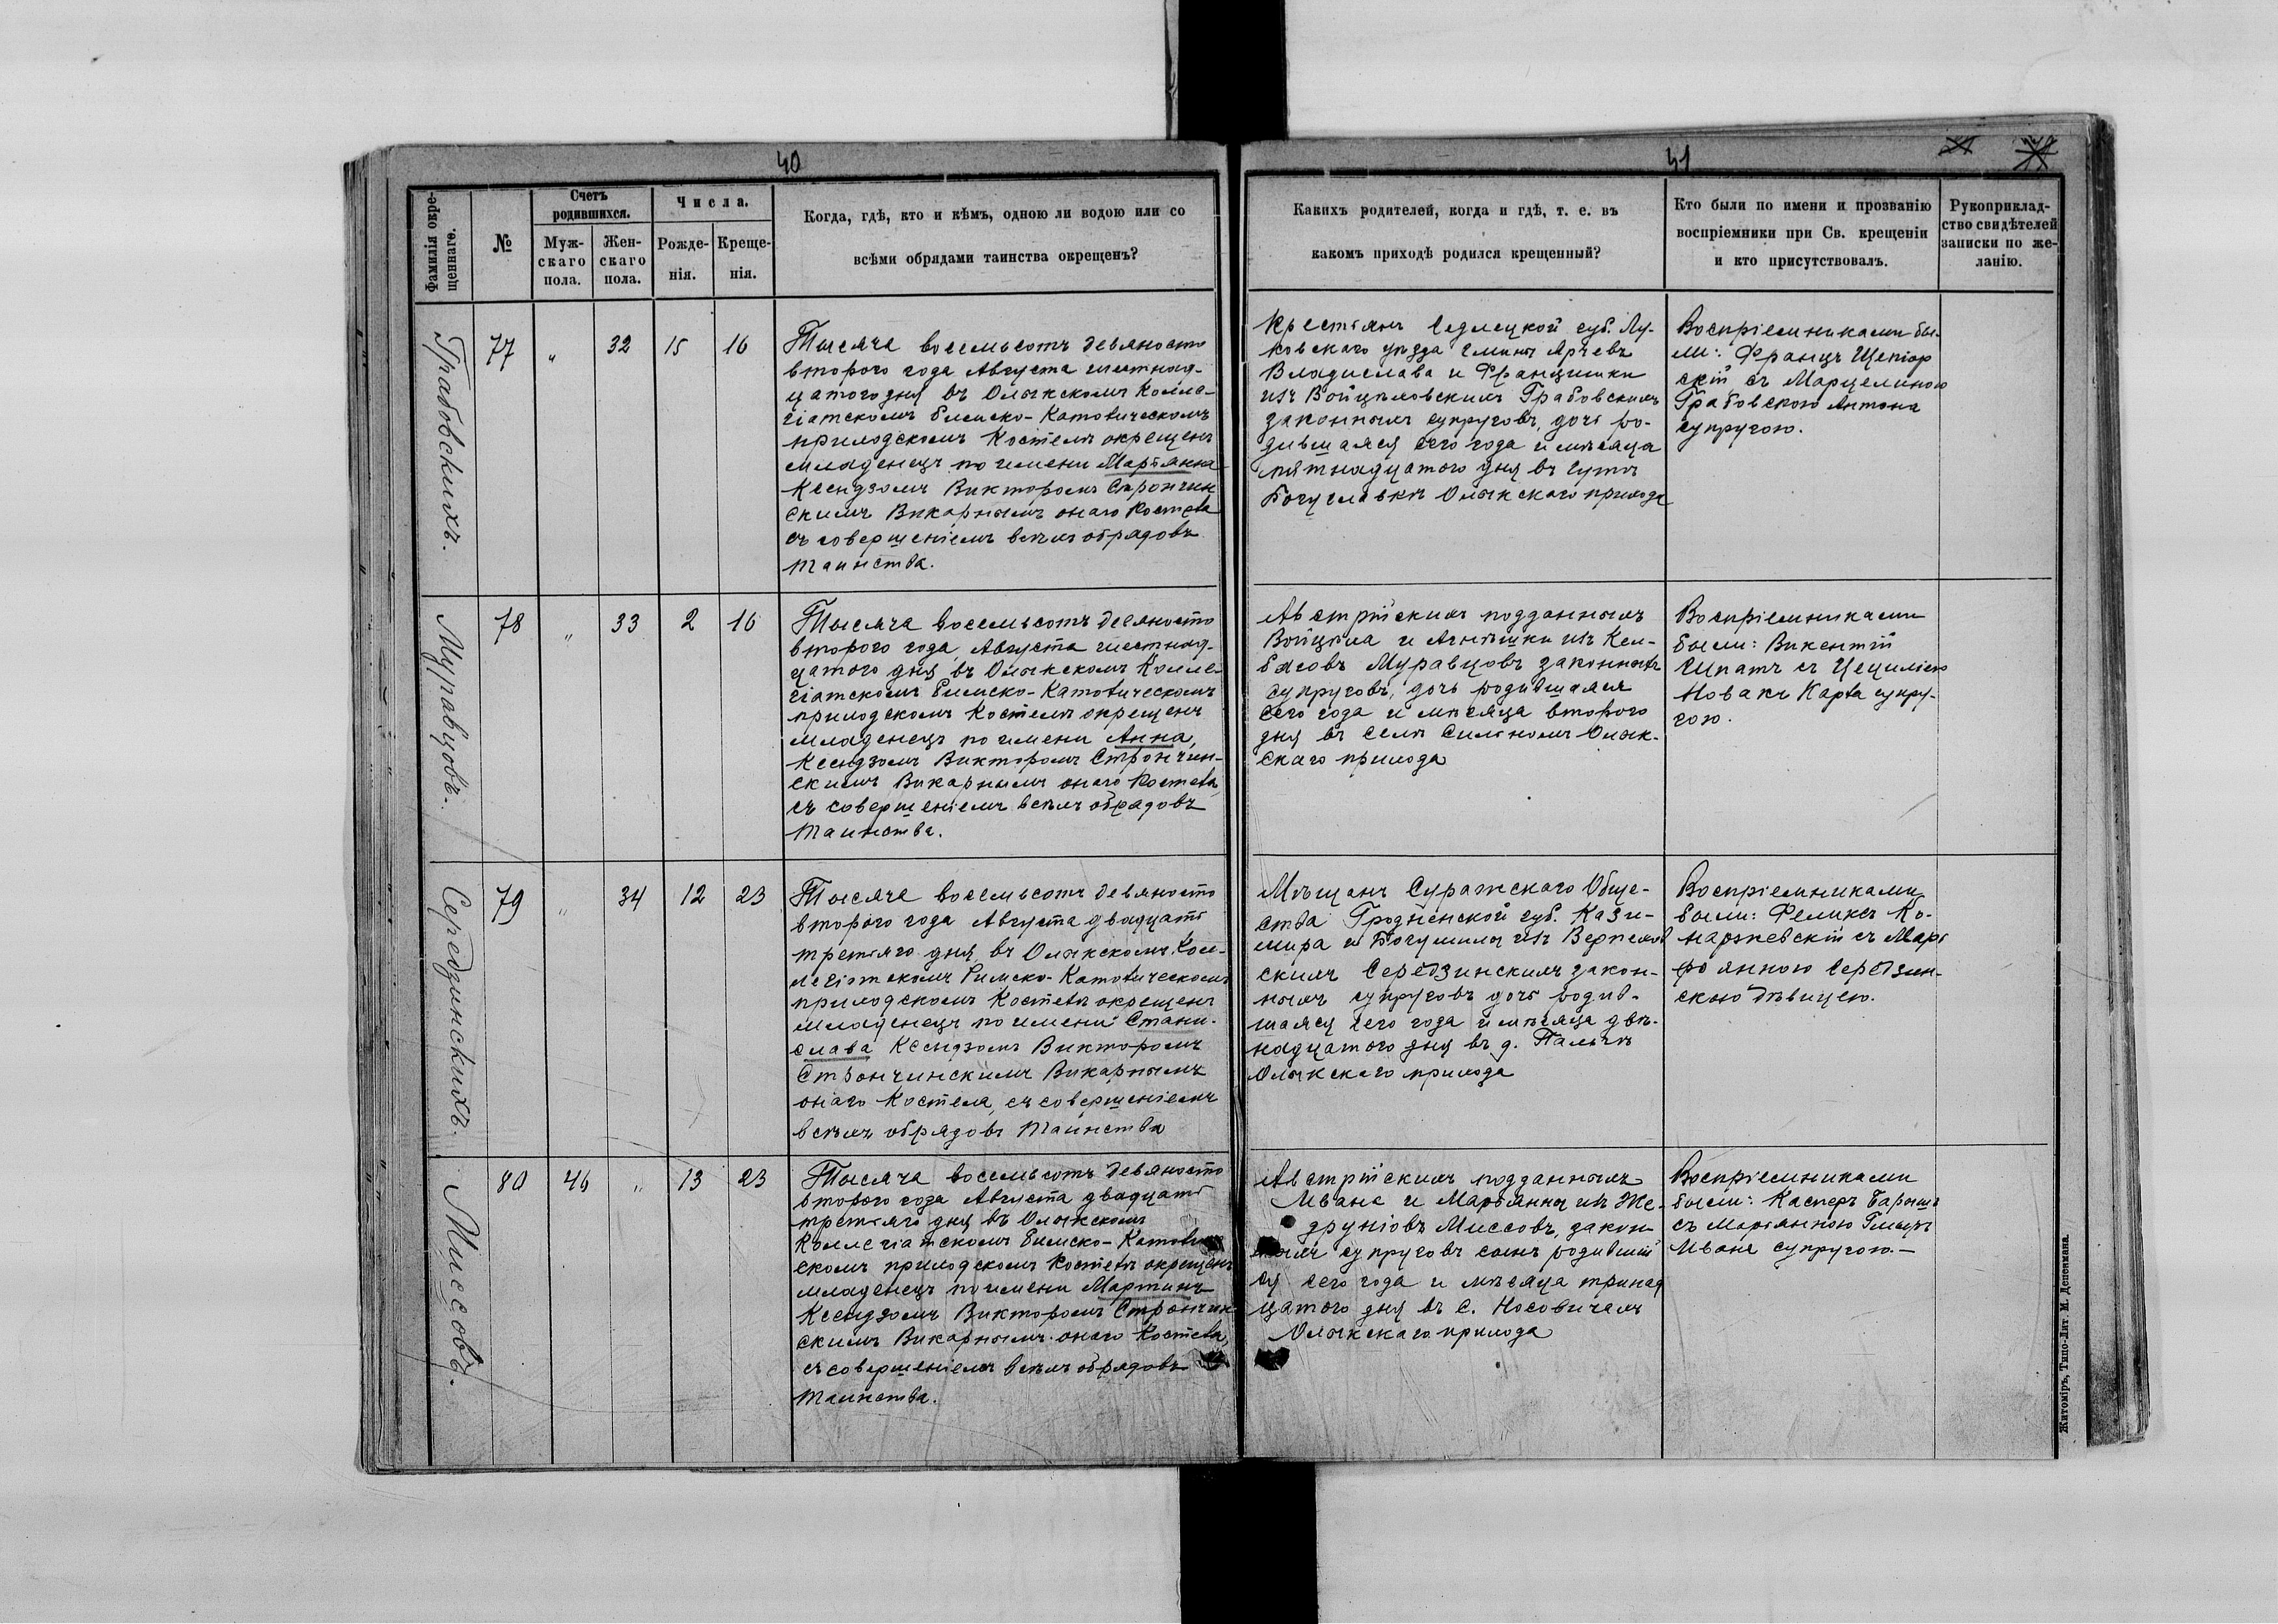 40
Фамилія окре-
щеннаго.
№
Счетъ
родившихся.
Муж-
скаго
пола.
Жен-
скаго
пола.
Числа.
Рожде-
нія.
Креще-
нія.
Когда, гдѣ, кто и кѣмъ, одною ли водою или со
всѣми обрядами таинства окрещенъ?
Грабовскихъ.
77
"
32
15
16
Тысяча восемьсотъ девяносто
второго года Августа шестнад-
цатого дня въ Олыкскомъ Колле-
гіатскомъ Римско-Католическомъ
приходскомъ Костелѣ окрещенъ
младенецъ по имени Марьянна
Ксендзомъ Викторомъ Строчин
скимъ Викарнымъ онаго Костела
съ совершеніемъ всѣхъ обрядовъ
таинства.
Муравцовъ.
78
"
33
2
16
Тысяча восемьсотъ девяносто
второго года Августа шестнад-
цатого дня въ Олыкскомъ Колле-
гіатскомъ Римско-Католическомъ
приходскомъ Костелѣ окрещенъ
младенецъ по имени Анна,
Ксендзомъ Викторомъ Строчин-
скимъ Викарнымъ онаго Костела,
съ совершеніемъ всѣхъ обрядовъ
таинства.
Середзинскихъ.
79
"
34
12
23
Тысяча восемьсотъ девяносто
второго года Августа двадцать
третьяго дня въ Олыкскомъ Кол-
легіатскомъ Римско-Католическомъ
приходскомъ Костелѣ окрещенъ
младенецъ по имени Стани-
слава Ксендзомъ Викторомъ
Строчинскимъ Викарнымъ
онаго Костела, съ совершеніемъ
всѣхъ обрядовъ таинства
Миссовъ.
80
46
"
13
23
Тысяча восемьсотъ девяносто
второго года Августа двадцать
третьяго дня въ Олыкскомъ
Коллегіатскомъ Римско-Католиче
скомъ приходскомъ Костелѣ окрещенъ
младенецъ по имени Мартинъ
Ксендзомъ Викторомъ Строчин-
скимъ Викарнымъ онаго Костела,
съ совершеніемъ всѣхъ обрядовъ
таинства.
41
Какихъ родителей, когда и гдѣ, т. е. въ
какомъ приходѣ родился крещенный?
Кто были по имени и прозванію
воспріемники при Св. крещеніи
и кто присутствовалъ.
Рукоприклад-
ство свидѣтелей
записки по же-
ланію.
Крестьянъ Седлецкой губ. Лу-
ковскаго уѣзда гмины
Владислава и Францишки
изъ Войцѣховскихъ Грабовскихъ
законныхъ супруговъ, дочь ро-
дившаяся сего года и мѣсяца
пятнадцатого дня въ Гутѣ
Богуславкѣ Олыкского прихода
Воспріемниками бы-
ли: Францъ Щепіор
скій съ Марцелиною
Грабовскою Антона
супругою.
Австрійскихъ подданныхъ
Войцѣха и Агнѣшки изъ Кел-
басовъ Муравцовъ законныхъ
супруговъ, дочь родившаяся
сего года и мѣсяца второго
дня въ селѣ Сильномъ Олык-
скаго прихода
Воспріемниками
были: Викентій
съ Цециліею
Новакъ Карла супру-
гою.
Мѣщанъ Суражскаго Обще-
ства Гродненской губ. Кази-
мира и Богумилы изъ
скихъ Середзинскихъ закон-
ныхъ супруговъ дочь родив-
шаяся сего года и мѣсяца двѣ-
надцатого дня въ д. Пальчѣ
Олыкскаго прихода
Воспріемниками
были: Феликсъ Ко-
маржевскій съ Марі
янною Середзин-
скою дѣвицею.
Австрійскихъ подданныхъ
Ивана и Марьянны изъ Же-
друніовъ Миссовъ, закон
ныхъ супруговъ сынъ родившій
ся сего года и мѣсяца тринад
цатого дня въ с. Носовичахъ
Олыкскаго прихода
Воспріемниками
были: Касперъ Барышъ
съ Марьянною
Ивана супругою.—
Житоміръ, Типо-Лит. М. Дененмана.